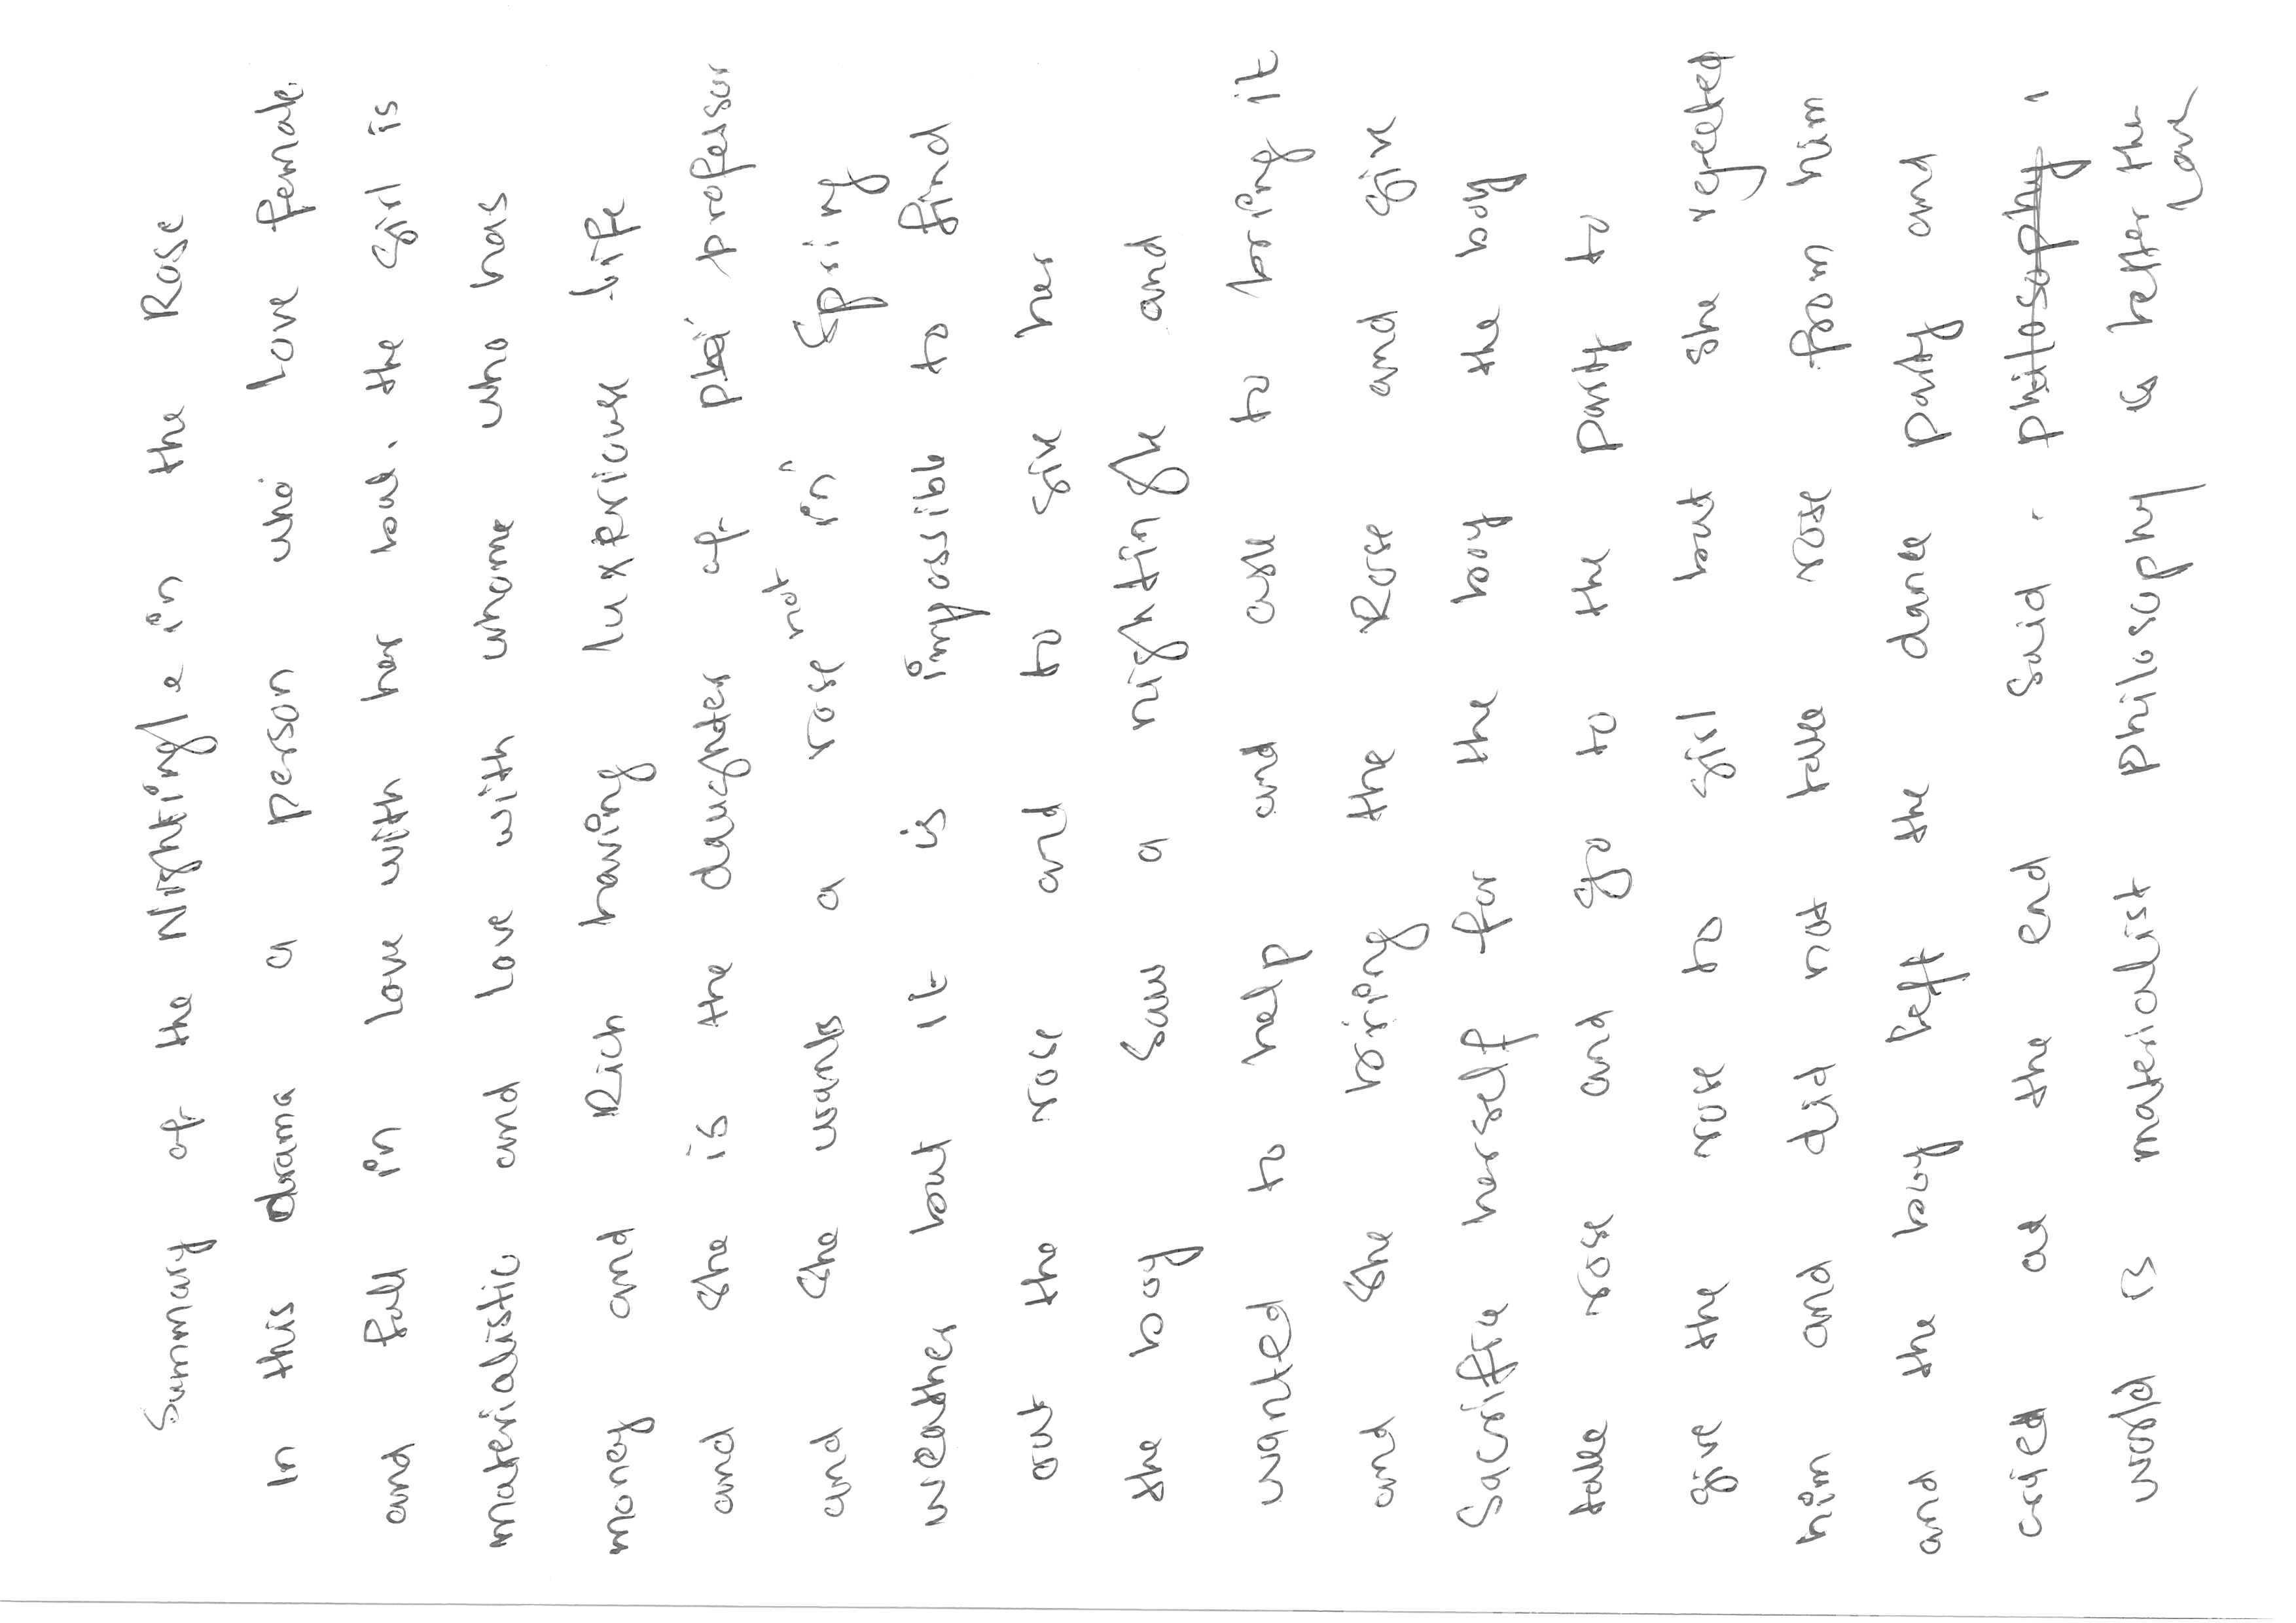 Summary of the Nightingle in the Rose
In this drama a person who love female
and fall in love with her but. the girl is
materialistic and love with whome who has
money and Rich having luxeriouse life
and she is the daughter of professor
and she wants a rose not in spring
weather but it is impossible to find
out the rose and to give her
the boy saw a nightingle and
wanted to help and ask to bring it
and she bring the Rose and give
Sacrifice herself for the boy the boy
take rose and go to the party to
give the rose to girl but she rejected
him and did not take rose from him
and the boy left the dance party and
cried at the end said. philosophy
world is materialist philosophy is better the
love